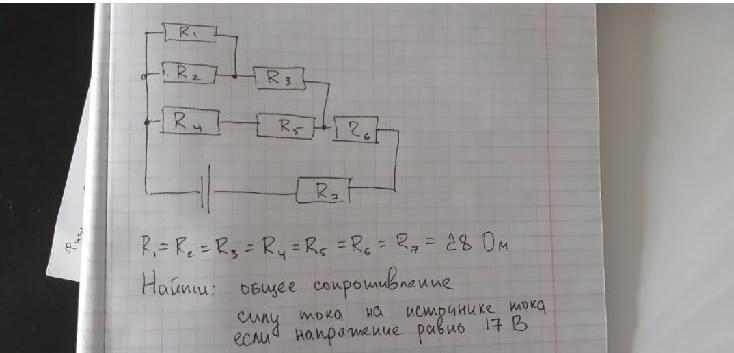 R₁
R₂
R₃
R₄
R₅
R₆
R₇
R₁ = R₂ = R₃ = R₄ = R₅ = R₆ = R₇ = 28 Ом
Найти: общее сопротивление
силу тока на источнике тока
если напряжение равно 17 В